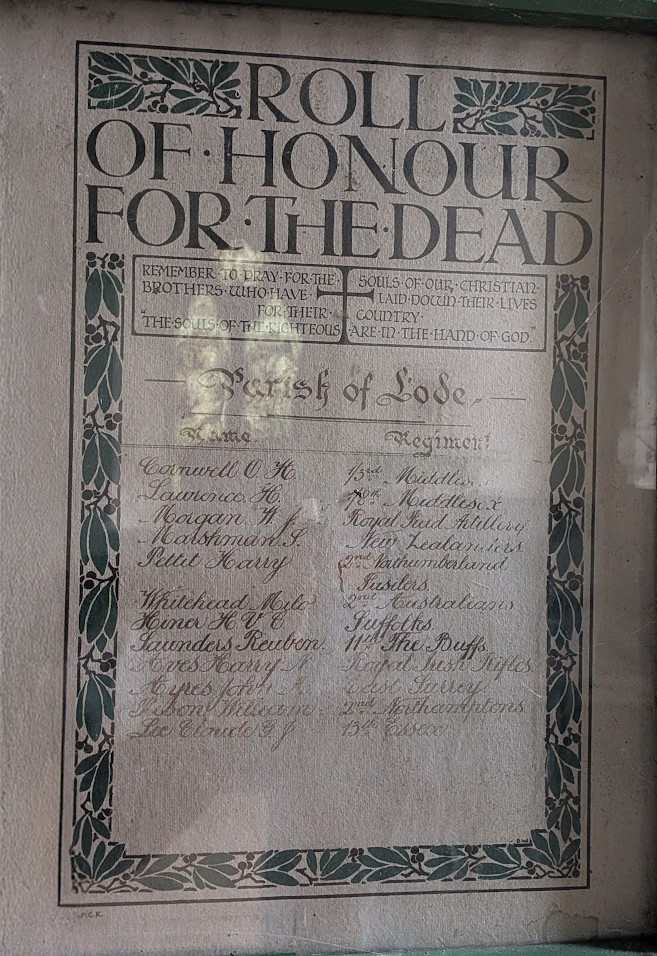 ROLL
OF·HONOUR
FOR·THE·DEAD
REMEMBER·TO·PRAY·FOR·THE· SOULS·OF·OUR·CHRISTIAN·
BROTHERS·WHO·HAVE· LAID·DOWN·THEIR·LIVES
FOR·THEIR· COUNTRY·
"THE·SOULS·OF·THE·RIGHTEOUS ARE·IN·THE·HAND·OF·GOD."
Parish of Lode.
Name. Regiment
Cornwell O H. 1/3rd
Lawrence H. Middlesex
Morgan W J. Royal Field Artillery
Marshman S. New Zealanders
Pettit Harry 2nd Northumberland
Fusilers
Whitehead Milo 2nd Australians
Hiner H V E Suffolks
Saunders Reuben. 11th The Buffs.
Aves Harry N Royal Irish Rifles
Ayres John A. East Surrey
William 2nd Northamptons
Lee Claude G J 13th Essex